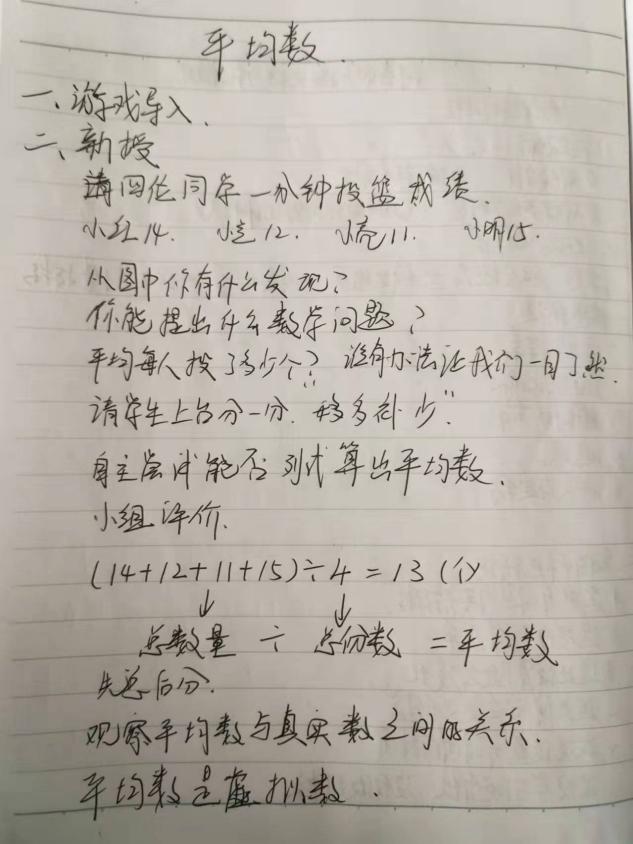 平均数.
一、游戏导入.
二、新授
请四位同学一分钟投篮成绩.
小红14. 小兰12. 小亮11. 小明15.
从图中你有什么发现?
你能提出什么数学问题?
平均每人投了多少个? 谁有办法让我们一目了然.
请学生上台分一分. “移多补少”.
自主尝试能否列式算出平均数.
小组评价.
(14+12+11+15)÷4=13(个)
↓ ↓
总数量 ÷ 总份数 = 平均数
先总后分.
观察平均数与真实数之间的关系.
平均数是虚拟数.